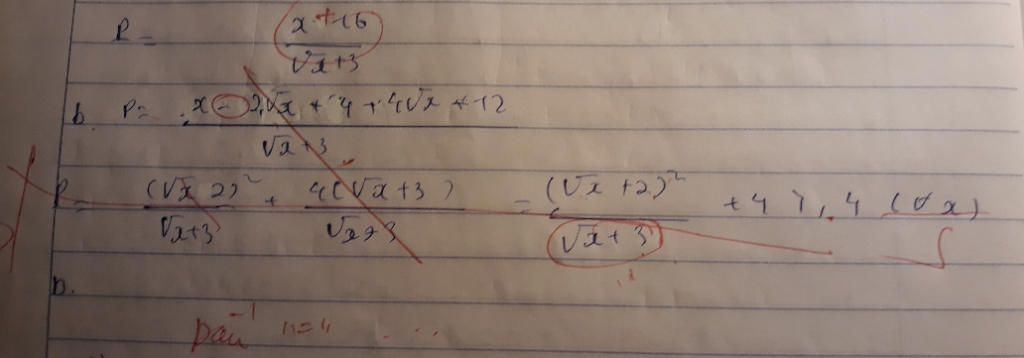 P = (x + 16)/(√x + 3)
b. P = (x - 2√x + 4 + 4√x + 12)/(√x + 3)
P = (√x 2)²/(√x + 3) + 4(√x + 3)/(√x + 3) = (√x + 2)²/(√x + 3) + 4 ≥ 4 (∀x)
"="